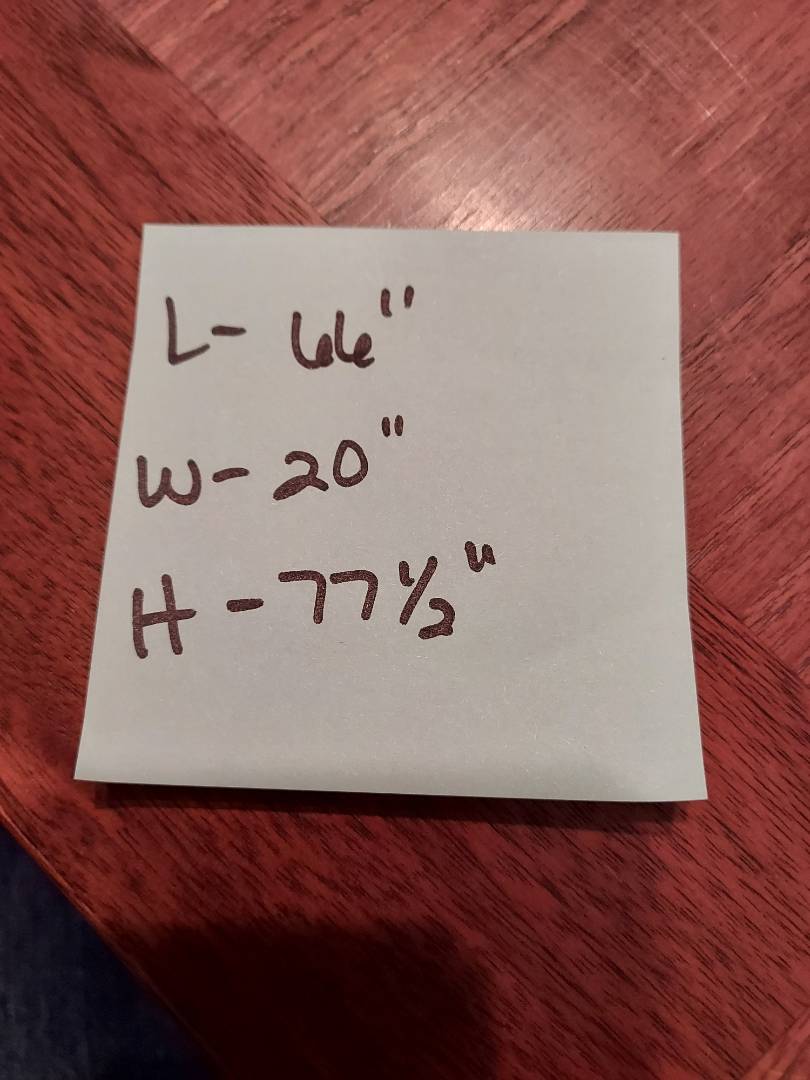 L- 66"
W- 20"
H - 77 1/2"